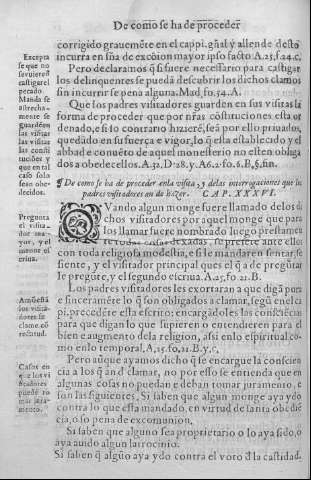 De como se ha de proceder
corrigido grauemẽte en el cappi. gñal y allende desto
incurra en sñia de excoion mayor ipso facto A. 25. f. 24. c.
Pero declaramos q̃ si fuere necessario para castigar
los delinquentes se pueda descubrir los dichos clamos
sin incurrir se pena alguna. Mad. fo. 54. A.
Que los padres visitadores guarden en sus visitas la
forma de proceder que por nr̃as cõstituciones esta or
denado, e si lo contrario hizierẽ, seã por ello priuados,
quedãdo en su fuerça e vigor, lo q̃ esta establecido y el
abbad e conuẽto de aquel monesterio no esten obliga
dos a obedecellos. A. 32. D. 28. y. A6. 2. fo. 6. B. §. fin.
Excepta
se que no
siruiesen
castigar el
pecado.
Manda se
estrecha-
mente se
guardẽ en
las visitas
las visitas
las consti
tuciones y
que en tal
caso solo
sean obe-
decidos.
¶ De como se ha de proceder en la visita, y delas interrogaciones que los
padres visitadores an de hazer. CAP. XXXVI.
QVando algun monge fuere llamado delos di
chos visitadores por aquel monge que para
los llamar fuere nombrado luego prestamen
te todas cosas dexadas, se presente ante ellos
con toda religiosa modestia, e si le mandaren sentar, se
siente, y el visitador principal ques el q̃ a de pregũtar
le pregũte, y el segundo escriua. A. 25. fo. 21. B.
Pregunta
el visita-
dor ma-
yor, y el
menor es
criua.
Los padres visitadores les exortaran a que digã pura
e sinceramẽte lo q̃ son obligados a clamar, segũ en el ca
pi. precedẽte esta escrito: encargãdoles las cõsciẽcias
para que digan lo que supieren o entendieren para el
bien e augmento dela religion, assi en lo espiritual co
mo en lo temporal, A, 25. fo. 22. B. y. c,
Amõesta
los visita-
dores se
clame cõ
rectitud.
Pero aũque ayamos dicho q̃ se encargue la conscien
cia a los q̃ an d̃ clamar, no por esso se entienda que en
algunas cosas no puedan e deban tomar juramẽto, e
son las siguientes, Si saben que algun monge aya ydo
contra lo que esta mandado, en virtud de santa obediẽ
cia, o so pena de excomunion,
Casos en
q̃ los vi
sitadores
puedẽ to
mar jura-
mento.
Si saben que alguno sea proprietario o lo aya sido, o
aya auido algun larrocinio.
Si saben q̃ algũo aya ydo contra el voto d̃ la castidad.